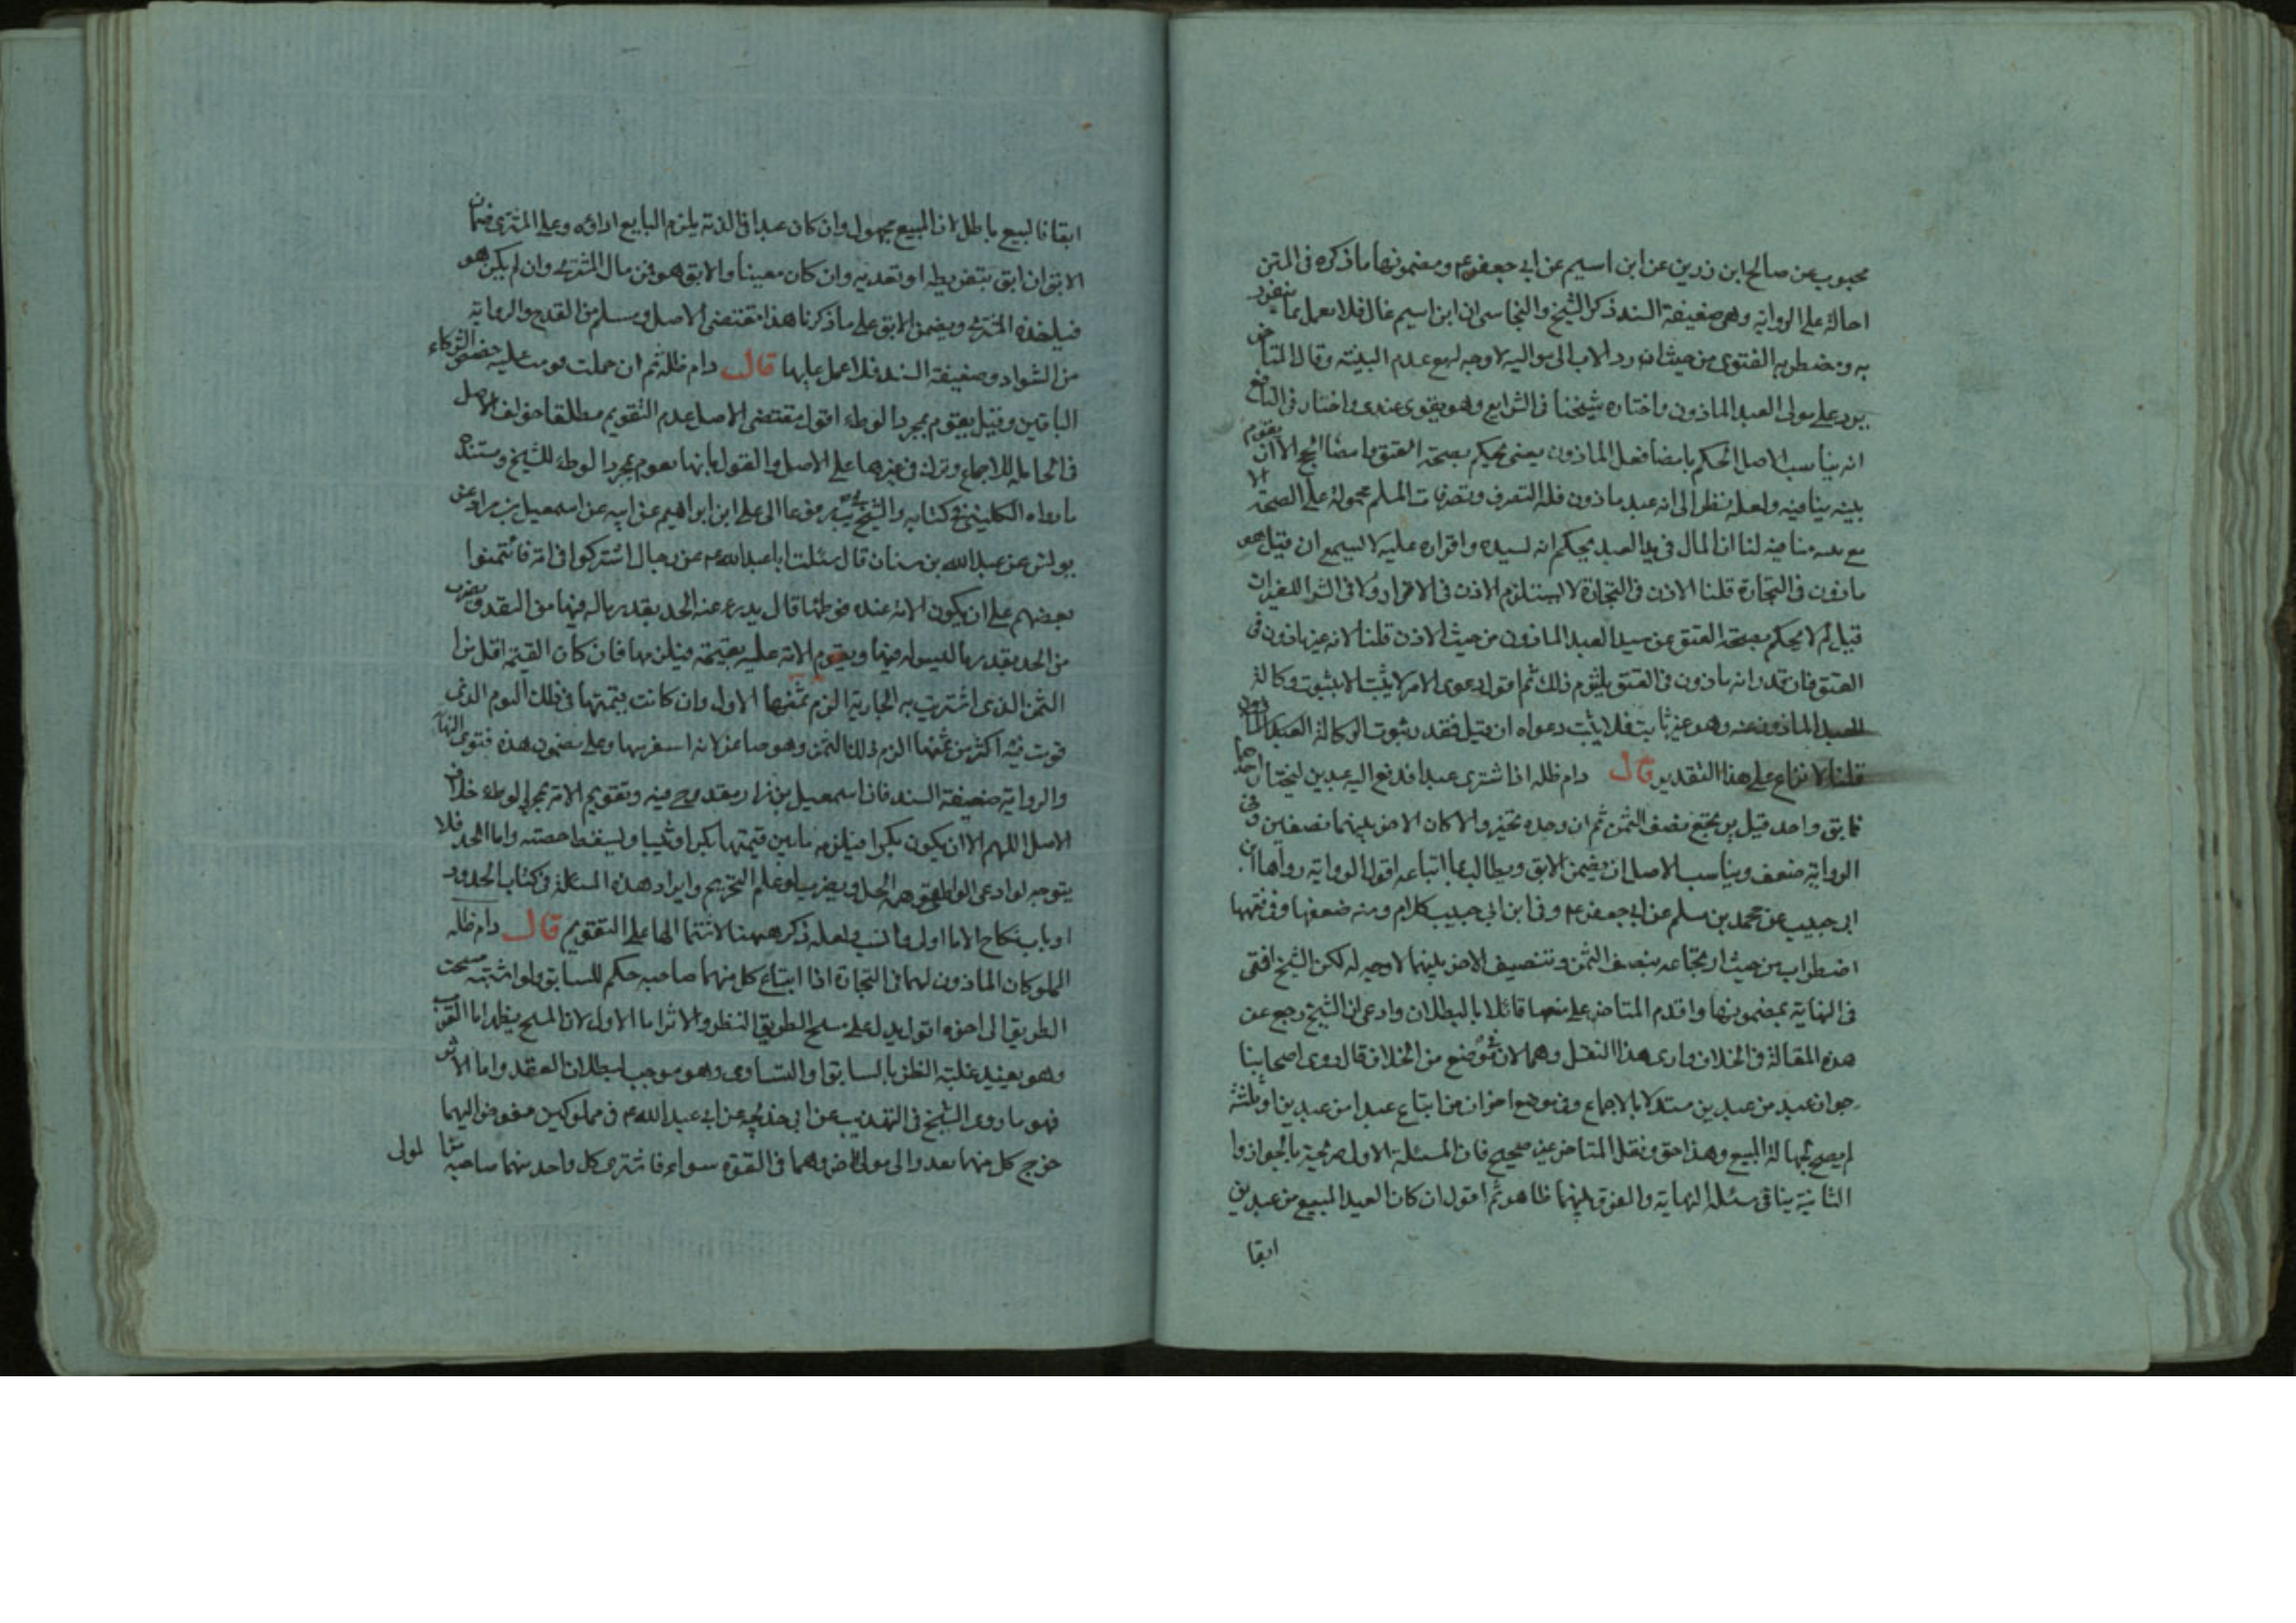 محبوب عن صالح ابن زرين عن ابن اسيم عن ابى جعفر ع و مضمونها ما ذكره فى المتن
احالة على الرواية وهى ضعيفة السند ذكر الشيخ والنجاسى ان ابن اسيم غال فلا يعمل بما ينفرد
به و يضطر به الفتوى من حيث انه رد الاب الى مواليه لا وجه له مع عدم البينة وقال المتاخر
يرد على مولى العبد الماذون واختاره شيخنا فى الشرايع وهو يقوى عندى واختار فى النافع
انه يناسب الاصل الحكم بامضا فعل الماذون يعنى يحكم بصحة العتق وامضا الحج الا ان يقوم
بينة ينافيه ولعله نظر الى انه عبد ماذون فله التصرف وتصرفات المسلم محمولة على الصحة الا
مع منافيه لنا ان المال فى يد العبد يحكم انه لسيده واقراره عليه لا يسمع ان قيل هو
ماذون فى التجارة قلنا الاذن فى التجارة لا يستلزم الاذن فى الاقرار ولا فى الشرا للغير ان
قيل لم لا يحكم بصحة العتق من سيد العبد الماذون من حيث الاذن قلنا لانه غير ماذون فى
العتق فان قدر انه ماذون فى العتق يلتزم ذلك ثم اقول دعوى الامر لا يثبت الا بثبوت وكالة
العبد الماذون عنه وهو غير ثابت فلا يثبت دعواه ان قيل فقدر ثبوت الوكالة العبد الماذون
قلنا لا نزاع على هذا التقدير قال دام ظله اذا اشترى عبدا فدفع اليه عبدين ليختار احدهما
فابق واحد قيل يرتجع نصف الثمن ثم ان وجده تخير والا كان الاخر بينهما نصفين وفى
الرواية ضعف ويناسب الاصل ان يضمن الابق ويطالب بما ابتاعه اقول الرواية رواها ابن
ابى حبيب عن محمد بن مسلم عن ابى جعفر ع وفى ابن ابى حبيب كلام ومنه ضعفها وفى فقهها
اضطراب من حيث ارتجاعه بنصف الثمن و تنصيف الاخر بينهما لا وجه له لكن الشيخ افتى
فى النهاية بمضمونها واقدم المتاخر على منعها قائلا بالبطلان وادعى ان الشيخ رجع عن
هذه المقالة فى الخلاف وارى هذا النقل وهما لان موضع من الخلاف قال روى اصحابنا
جواز عبد من عبدين مستدلا بالاجماع وفى موضع اخر ان من ابتاع عبدا من عبدين او ثلثة
لم يصح لجهالة المبيع وهذا حق ونقل المتاخر غير صحيح فان المسئلة الاول صريحة بالجواز وا
الثانية ينافى مسئلة النهاية والفرق بينهما ظاهر ثم اقول ان كان العبد المبيع من عبدين
ابقا
ابقا فالبيع باطل لان المبيع مجهول وان كان عبدا فى الذمة يلزم البايع اداؤه وعلى المشترى ضمان
الابق ان ابق بتفريطه او تعديه وان كان معينا والابق هو فمن مال المشترى وان لم يكن هو
فياخذه المشترى ويضمن الابق على ما ذكرنا هذا مقتضى الاصل ويسلم من القدح والرواية
من الشواد وضعيفة السند فلا عمل عليها قال دام ظله ثم ان حملت قومت عليه حصص الشركاء
الباقين وقيل يقوم بمجرد الوطء اقول مقتضى الاصل عدم التقويم مطلقا خولف الاصل
فى الحامل للاجماع وترك فى غيرها على الاصل والقول بانها يقوم بمجرد الوطء للشيخ ومستنده
ما رواه الكلينى فى كتابه والشيخ يب مرفوعا الى على ابن ابراهيم عن ابيه عن اسمعيل بن مرار عن
يونس عن عبد الله بن سنان قال سئلت ابا عبد الله ع عن رجال اشتركوا فى امة فائتمنوا
بعضهم على ان يكون الامة عنده فوطئها قال يدرء عنه الحد بقدر ماله فيها من النقد ويضرب
من الحد بقدر ما ليس له فيها ويقوم الامة عليه بقيمة فيلزمها فان كان القيمة اقل من
الثمن الذى اشتريت به الجارية الزم ثمنها الاول وان كانت قيمتها فى ذلك اليوم الذى
قومت فيه اكثر من ثمنها الزم ذلك الثمن وهو صاغر لانه استفرشها وعلى مضمون هذه فتوى النهاية
والرواية ضعيفة السند فان اسمعيل بن مرار مقدوح فيه وتقويم الامة بمجرد الوطء خلاف
الاصل اللهم الا ان يكون بكرا فيلزمه ما بين قيمتها بكرا وثيبا ويسقط حصته واما الحد فلا
يتوجه لو ادعى الواطى الحل ويضرب لو علم التحريم وايراد هذه المسئلة فى كتاب الحدود
او باب نكاح الاما اولى وانسب ولعله ذكر ههنا لاشتمالها على التقويم قال دام ظله
المملوكان الماذون لهما فى التجارة اذا ابتاع كل منهما صاحبه حكم للسابق ولو اشتبه مسحت
الطريق الى اخره اقول يدل على مسح الطريق النظر والاثر اما الاول لان المسح يظهر اما القرب
وهو يفيد غلبة الظن بالسابق او التساوى وهو موجب لبطلان العقد واما الاثر
فهو ما روى الشيخ فى التهذيب عن ابى خديجة عن ابى عبد الله ع فى مملوكين مفوض اليهما
خرج كل منهما يعدو الى مولى الاخر وهما فى القوة سواء فاشترى كل واحد منهما صاحبه
لمولى